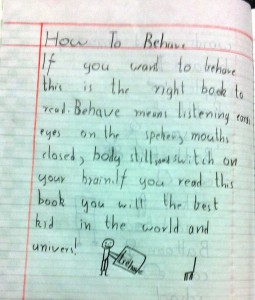 How To Behave
If you want to behave
this is the right book to
read. Behave means listening ears
eyes on the speker, mouths
closed, body still and switch on
your brain. If you read this
book you will the best
kid in the world and
univers!
Behave